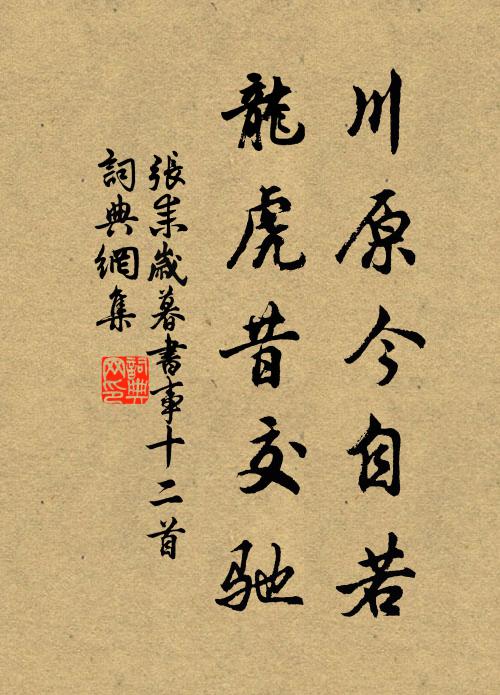 川原今自若
龍虎昔交馳
張耒歲暮書事十二首
詞典網集
詞典网印